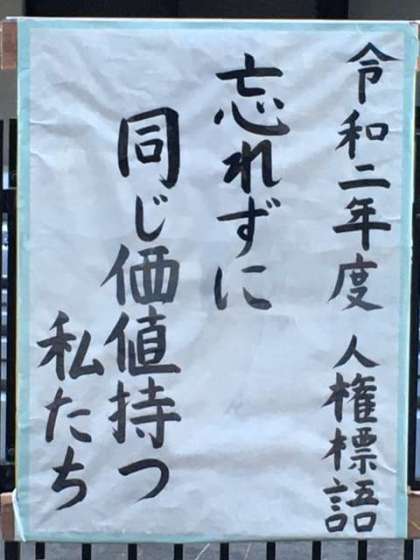 令和二年度 人権標語
忘れずに
同じ価値持つ
私たち